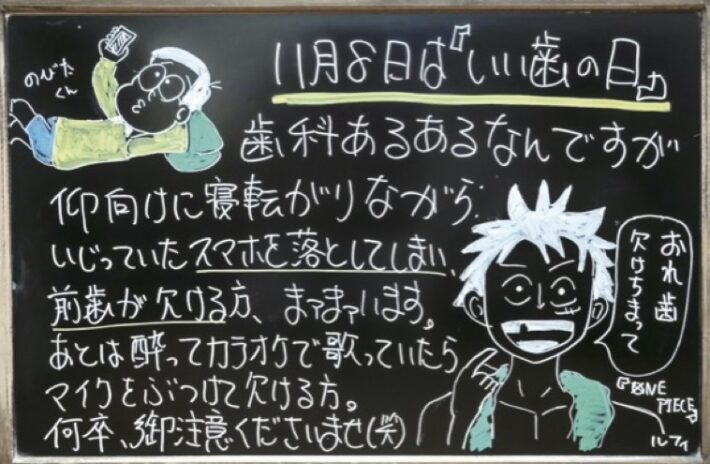 11月8日は『いい歯の日』
のびたくん
歯科あるあるなんですが
仰向けに寝転がりながら
いじっていたスマホを落としてしまい、
前歯が欠ける方、まァまァいます。
あとは酔ってカラオケで歌っていたら
マイクをぶつけて欠ける方。
何卒、御注意くださいませ(笑)
おれ歯
欠けちまって
『ONE
PIECE』
ルフィ